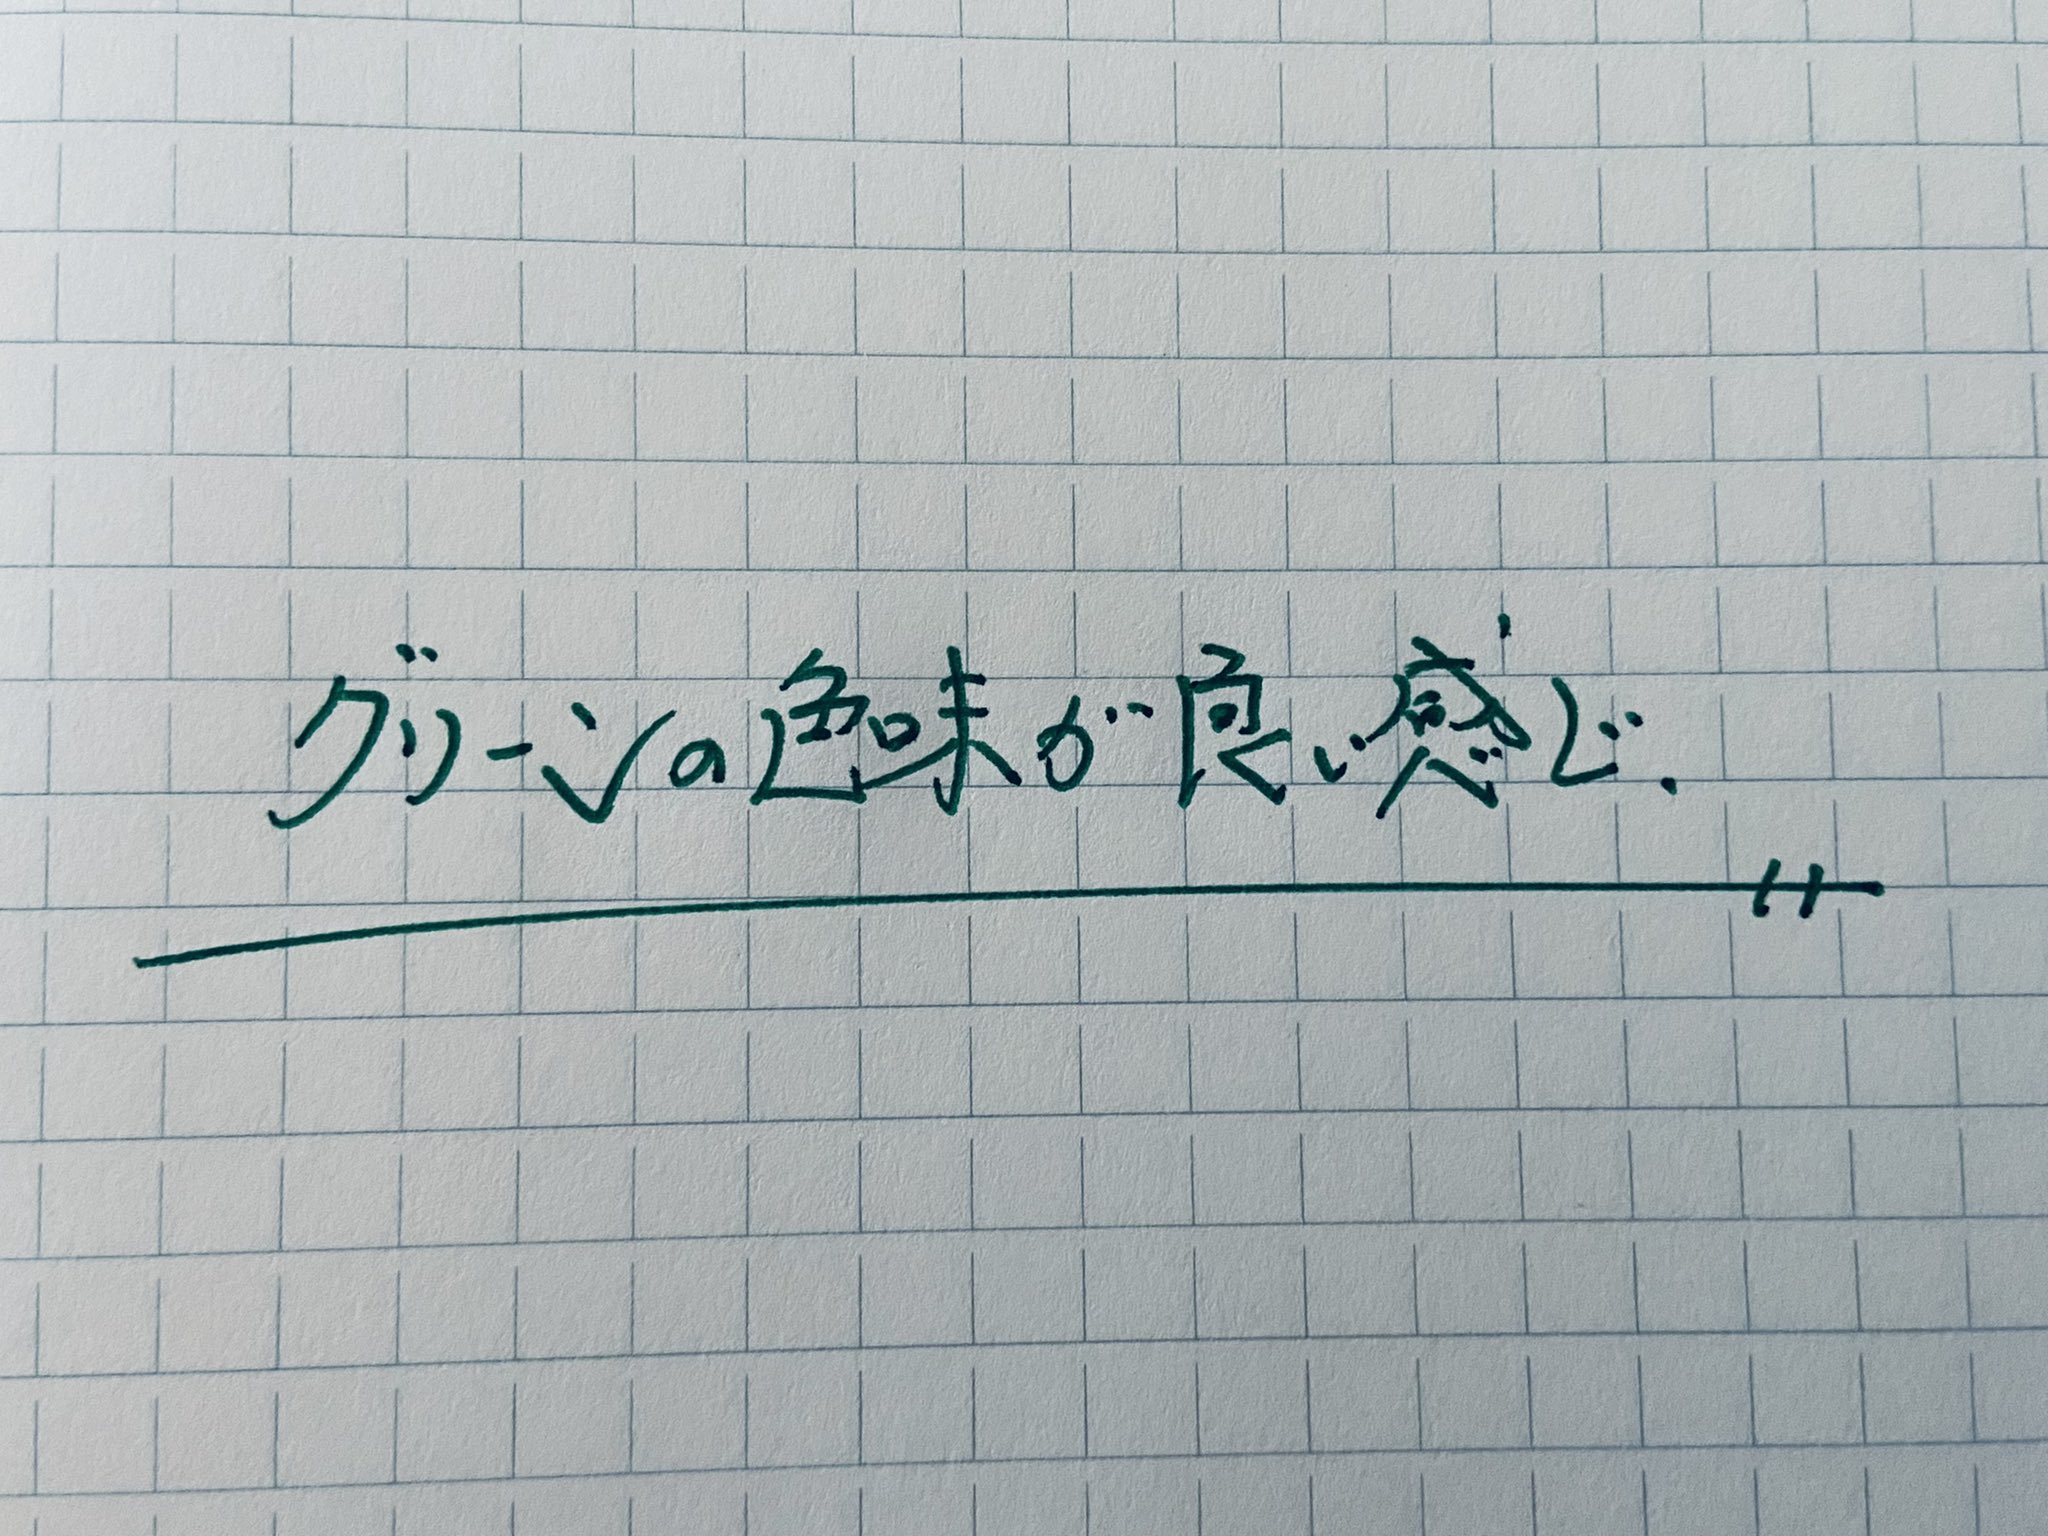 グリーンの色味が良い感じ.